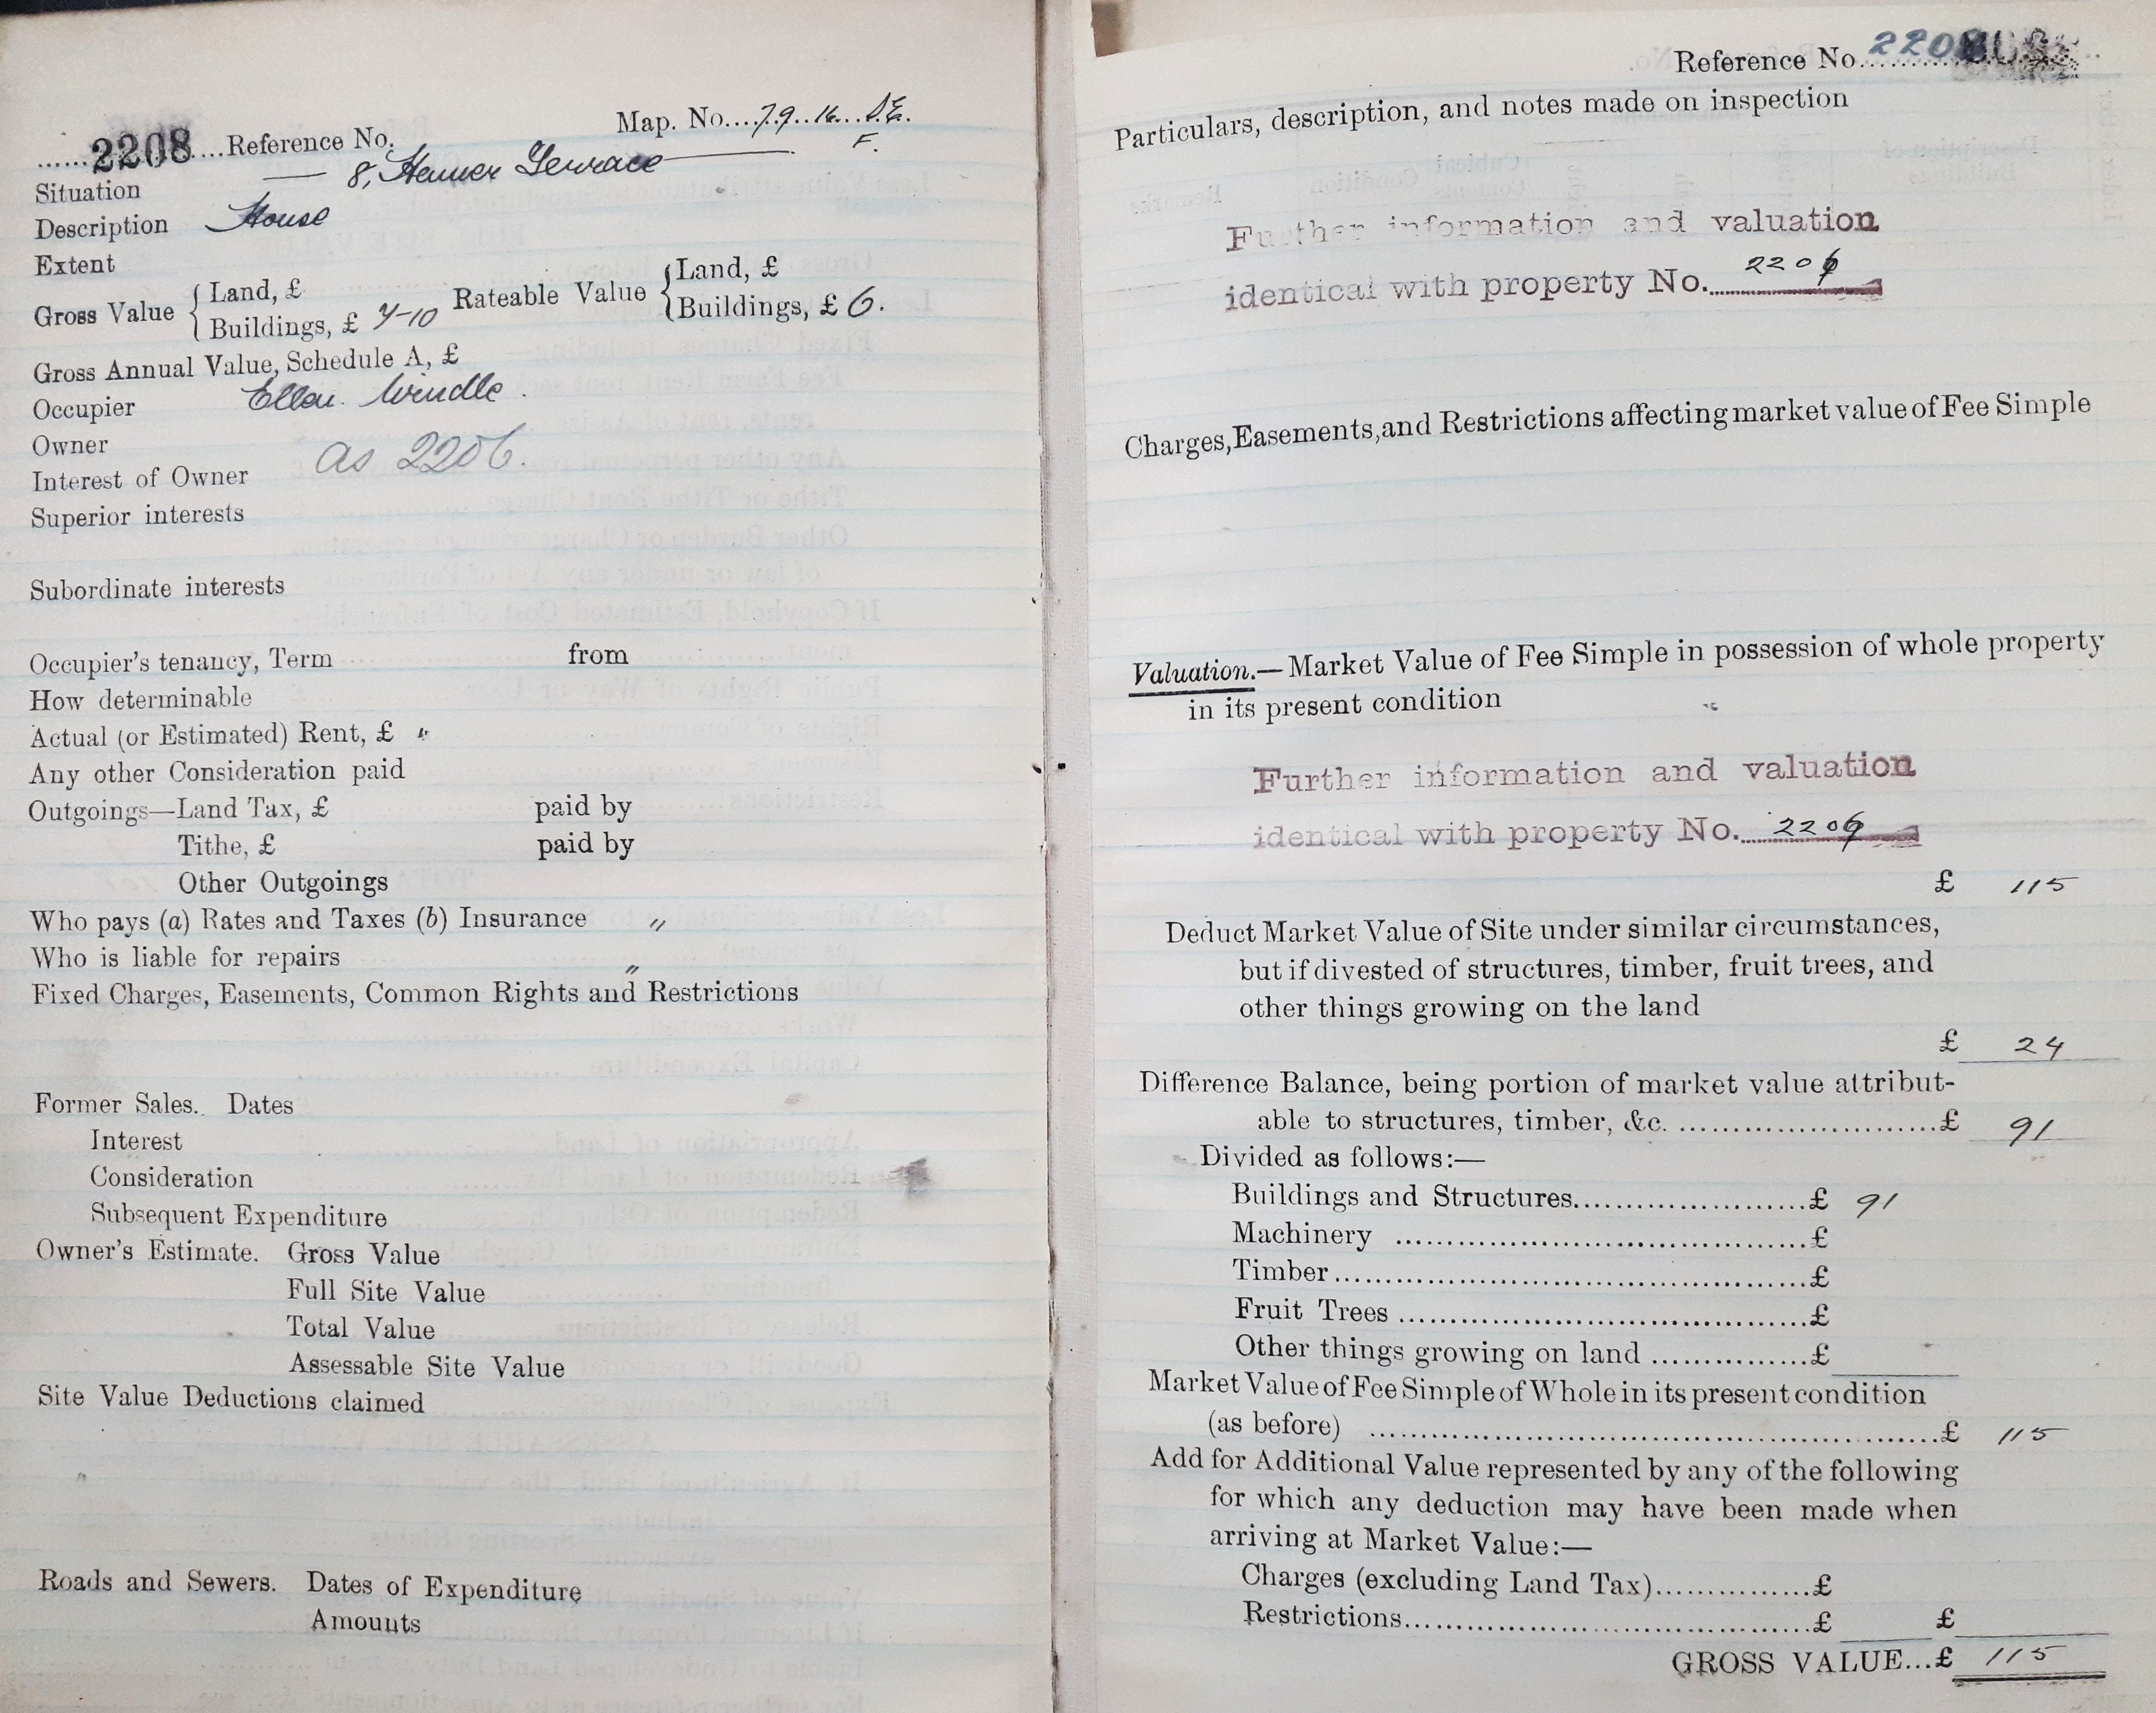 Map. No....79..16...S.E.
F.
......2208....Reference No.
Situation — 8, Hanner Terrace —
Description House
Extent
Gross Value { Land, £
Buildings, £ 7-10
Rateable Value { Land, £
Buildings, £ 6.
Gross Annual Value, Schedule A, £
Occupier Ellen Windle.
Owner
as 2206.
Interest of Owner
Superior interests
Subordinate interests
Occupier's tenancy, Term from
How determinable
Actual (or Estimated) Rent, £ "
Any other Consideration paid
Outgoings—Land Tax, £ paid by
Tithe, £ paid by
Other Outgoings
Who pays (a) Rates and Taxes (b) Insurance "
Who is liable for repairs "
Fixed Charges, Easements, Common Rights and Restrictions
Former Sales. Dates
Interest
Consideration
Subsequent Expenditure
Owner's Estimate. Gross Value
Full Site Value
Total Value
Assessable Site Value
Site Value Deductions claimed
Roads and Sewers. Dates of Expenditure
Amounts
Reference No. 2208
Particulars, description, and notes made on inspection
Further information and valuation
identical with property No. 2206
Charges, Easements, and Restrictions affecting market value of Fee Simple
Valuation.—Market Value of Fee Simple in possession of whole property
in its present condition
Further information and valuation
identical with property No. 2206
£ 115
Deduct Market Value of Site under similar circumstances,
but if divested of structures, timber, fruit trees, and
other things growing on the land
£ 24
Difference Balance, being portion of market value attribut-
able to structures, timber, &c. ........................£ 91
Divided as follows:—
Buildings and Structures........................£ 91
Machinery ........................£
Timber........................£
Fruit Trees ........................£
Other things growing on land ...............£
Market Value of Fee Simple of Whole in its present condition
(as before) ........................£ 115
Add for Additional Value represented by any of the following
for which any deduction may have been made when
arriving at Market Value:—
Charges (excluding Land Tax)...............£
Restrictions........................£ £
GROSS VALUE...£ 115